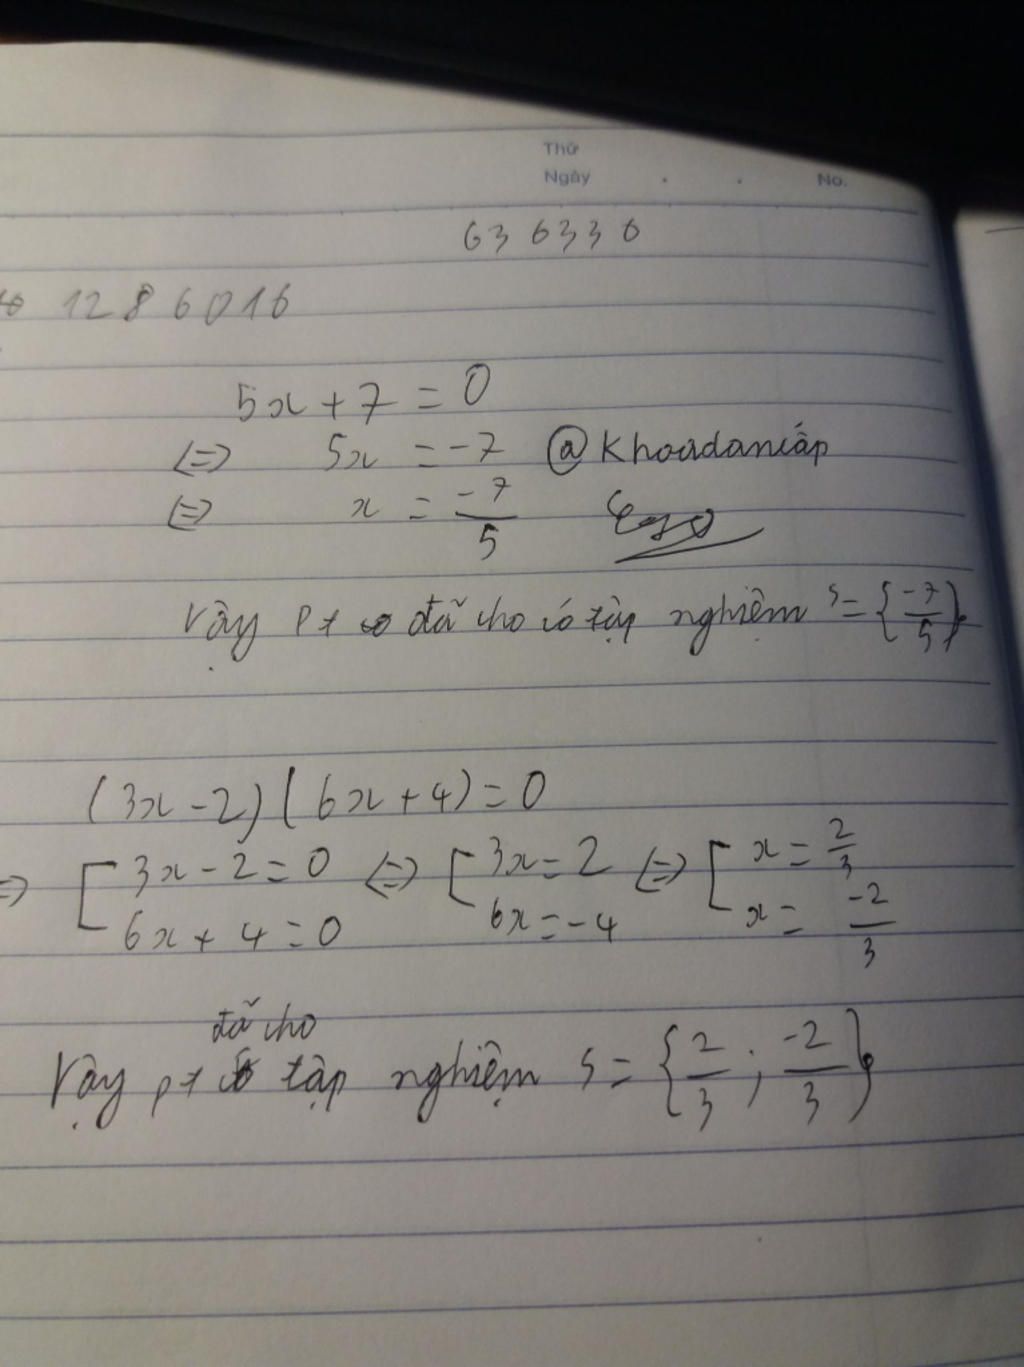 Thứ
Ngày . . No.
636330
1286016
5x + 7 = 0
<=> 5x = -7 @Khoadancấp
<=> x = -7/5
Vậy pt đã cho có tập nghiệm S = {-7/5}
(3x - 2)(6x + 4) = 0
=> [ 3x - 2 = 0 <=> [ 3x = 2 <=> [ x = 2/3
6x + 4 = 0 6x = -4 x = -2/3
đã cho
Vậy pt có tập nghiệm S = {2/3 ; -2/3}